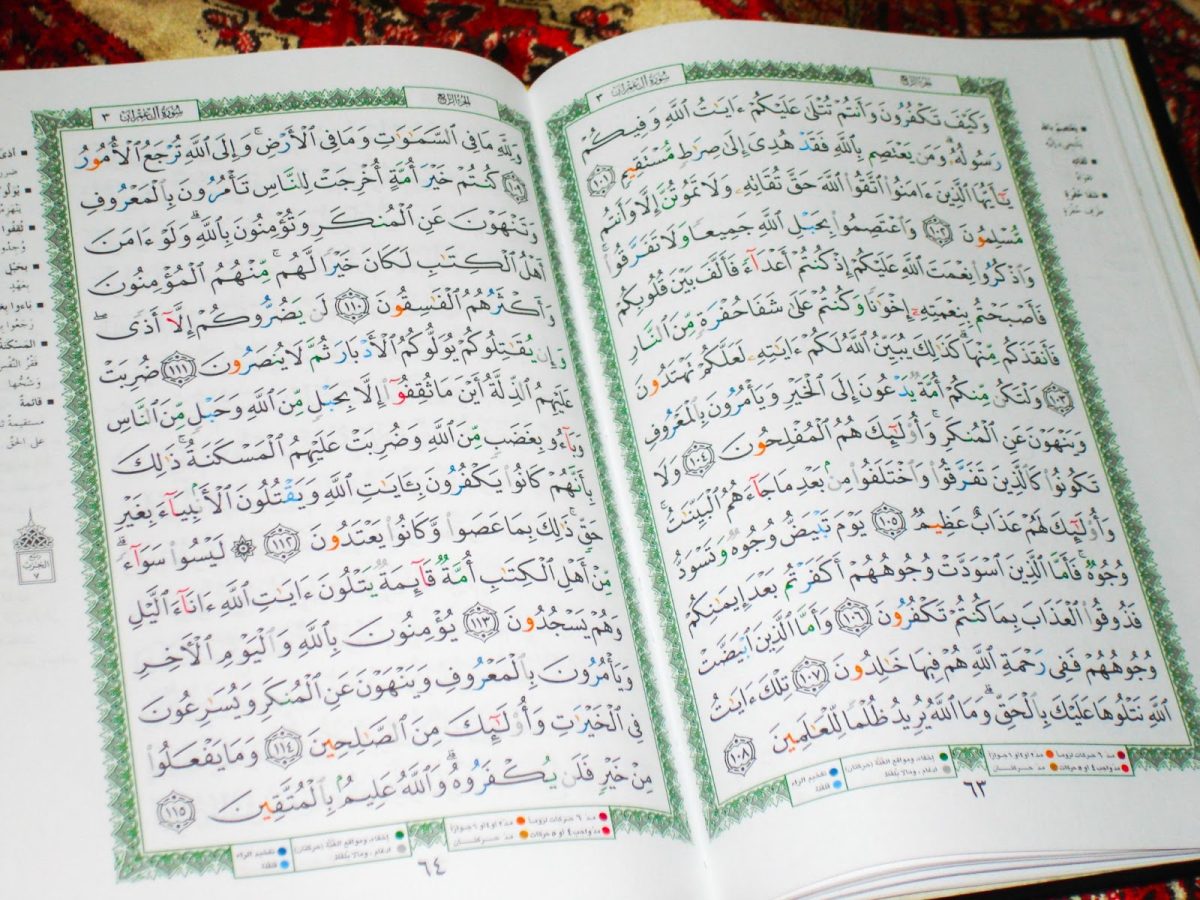 سورة آل عمران ٣
الجزء الرابع
وَكَيْفَ تَكْفُرُونَ وَأَنتُمْ تُتْلَىٰ عَلَيْكُمْ ءَايَٰتُ ٱللَّهِ وَفِيكُمْ
رَسُولُهُۥ وَمَن يَعْتَصِم بِٱللَّهِ فَقَدْ هُدِىَ إِلَىٰ صِرَٰطٍ مُّسْتَقِيمٍ ١٠١
يَٰٓأَيُّهَا ٱلَّذِينَ ءَامَنُوا۟ ٱتَّقُوا۟ ٱللَّهَ حَقَّ تُقَاتِهِۦ وَلَا تَمُوتُنَّ إِلَّا وَأَنتُم
مُّسْلِمُونَ ١٠٢ وَٱعْتَصِمُوا۟ بِحَبْلِ ٱللَّهِ جَمِيعًا وَلَا تَفَرَّقُوا۟ ۚ
وَٱذْكُرُوا۟ نِعْمَتَ ٱللَّهِ عَلَيْكُمْ إِذْ كُنتُمْ أَعْدَآءً فَأَلَّفَ بَيْنَ قُلُوبِكُمْ
فَأَصْبَحْتُم بِنِعْمَتِهِۦٓ إِخْوَٰنًا وَكُنتُمْ عَلَىٰ شَفَا حُفْرَةٍ مِّنَ ٱلنَّارِ
فَأَنقَذَكُم مِّنْهَا ۗ كَذَٰلِكَ يُبَيِّنُ ٱللَّهُ لَكُمْ ءَايَٰتِهِۦ لَعَلَّكُمْ تَهْتَدُونَ
١٠٣ وَلْتَكُن مِّنكُمْ أُمَّةٌ يَدْعُونَ إِلَى ٱلْخَيْرِ وَيَأْمُرُونَ بِٱلْمَعْرُوفِ
وَيَنْهَوْنَ عَنِ ٱلْمُنكَرِ ۚ وَأُو۟لَٰٓئِكَ هُمُ ٱلْمُفْلِحُونَ ١٠٤ وَلَا
تَكُونُوا۟ كَٱلَّذِينَ تَفَرَّقُوا۟ وَٱخْتَلَفُوا۟ مِنۢ بَعْدِ مَا جَآءَهُمُ ٱلْبَيِّنَٰتُ ۚ
وَأُو۟لَٰٓئِكَ لَهُمْ عَذَابٌ عَظِيمٌ ١٠٥ يَوْمَ تَبْيَضُّ وُجُوهٌ وَتَسْوَدُّ
وُجُوهٌ ۚ فَأَمَّا ٱلَّذِينَ ٱسْوَدَّتْ وُجُوهُهُمْ أَكَفَرْتُم بَعْدَ إِيمَٰنِكُمْ
فَذُوقُوا۟ ٱلْعَذَابَ بِمَا كُنتُمْ تَكْفُرُونَ ١٠٦ وَأَمَّا ٱلَّذِينَ ٱبْيَضَّتْ
وُجُوهُهُمْ فَفِى رَحْمَةِ ٱللَّهِ هُمْ فِيهَا خَٰلِدُونَ ١٠٧ تِلْكَ ءَايَٰتُ
ٱللَّهِ نَتْلُوهَا عَلَيْكَ بِٱلْحَقِّ ۗ وَمَا ٱللَّهُ يُرِيدُ ظُلْمًا لِّلْعَٰلَمِينَ ١٠٨
مد ٦ حركات لزوماً مد ٢ أو ٤ أو ٦ جوازاً إخفاء، ومواقع الغنة (حركتان) تفخيم الراء
مد واجب ٤ أو ٥ حركات مد حركتان إدغام، وما لا يلفظ قلقلة
٦٣
سورة آل عمران ٣
الجزء الرابع
وَلِلَّهِ مَا فِى ٱلسَّمَٰوَٰتِ وَمَا فِى ٱلْأَرْضِ ۚ وَإِلَى ٱللَّهِ تُرْجَعُ ٱلْأُمُورُ
١٠٩ كُنتُمْ خَيْرَ أُمَّةٍ أُخْرِجَتْ لِلنَّاسِ تَأْمُرُونَ بِٱلْمَعْرُوفِ
وَتَنْهَوْنَ عَنِ ٱلْمُنكَرِ وَتُؤْمِنُونَ بِٱللَّهِ ۗ وَلَوْ ءَامَنَ
أَهْلُ ٱلْكِتَٰبِ لَكَانَ خَيْرًا لَّهُم ۚ مِّنْهُمُ ٱلْمُؤْمِنُونَ
وَأَكْثَرُهُمُ ٱلْفَٰسِقُونَ ١١٠ لَن يَضُرُّوكُمْ إِلَّآ أَذًى ۖ
وَإِن يُقَٰتِلُوكُمْ يُوَلُّوكُمُ ٱلْأَدْبَارَ ثُمَّ لَا يُنصَرُونَ ١١١ ضُرِبَتْ
عَلَيْهِمُ ٱلذِّلَّةُ أَيْنَ مَا ثُقِفُوٓا۟ إِلَّا بِحَبْلٍ مِّنَ ٱللَّهِ وَحَبْلٍ مِّنَ ٱلنَّاسِ
وَبَآءُو بِغَضَبٍ مِّنَ ٱللَّهِ وَضُرِبَتْ عَلَيْهِمُ ٱلْمَسْكَنَةُ ۚ ذَٰلِكَ
بِأَنَّهُمْ كَانُوا۟ يَكْفُرُونَ بِـَٔايَٰتِ ٱللَّهِ وَيَقْتُلُونَ ٱلْأَنۢبِيَآءَ بِغَيْرِ
حَقٍّ ۚ ذَٰلِكَ بِمَا عَصَوا۟ وَّكَانُوا۟ يَعْتَدُونَ ١١٢ ۞ لَيْسُوا۟ سَوَآءً ۗ
مِّنْ أَهْلِ ٱلْكِتَٰبِ أُمَّةٌ قَآئِمَةٌ يَتْلُونَ ءَايَٰتِ ٱللَّهِ ءَانَآءَ ٱلَّيْلِ
وَهُمْ يَسْجُدُونَ ١١٣ يُؤْمِنُونَ بِٱللَّهِ وَٱلْيَوْمِ ٱلْأَخِرِ
وَيَأْمُرُونَ بِٱلْمَعْرُوفِ وَيَنْهَوْنَ عَنِ ٱلْمُنكَرِ وَيُسَٰرِعُونَ
فِى ٱلْخَيْرَٰتِ وَأُو۟لَٰٓئِكَ مِنَ ٱلصَّٰلِحِينَ ١١٤ وَمَا يَفْعَلُوا۟
مِنْ خَيْرٍ فَلَن يُكْفَرُوهُ ۗ وَٱللَّهُ عَلِيمٌۢ بِٱلْمُتَّقِينَ ١١٥
مد ٦ حركات لزوماً مد ٢ أو ٤ أو ٦ جوازاً إخفاء، ومواقع الغنة (حركتان) تفخيم الراء
مد واجب ٤ أو ٥ حركات مد حركتان إدغام، وما لا يلفظ قلقلة
٦٤
بحبل
المسكنة
قائمة
على الحق
ربع
الحزب
٧